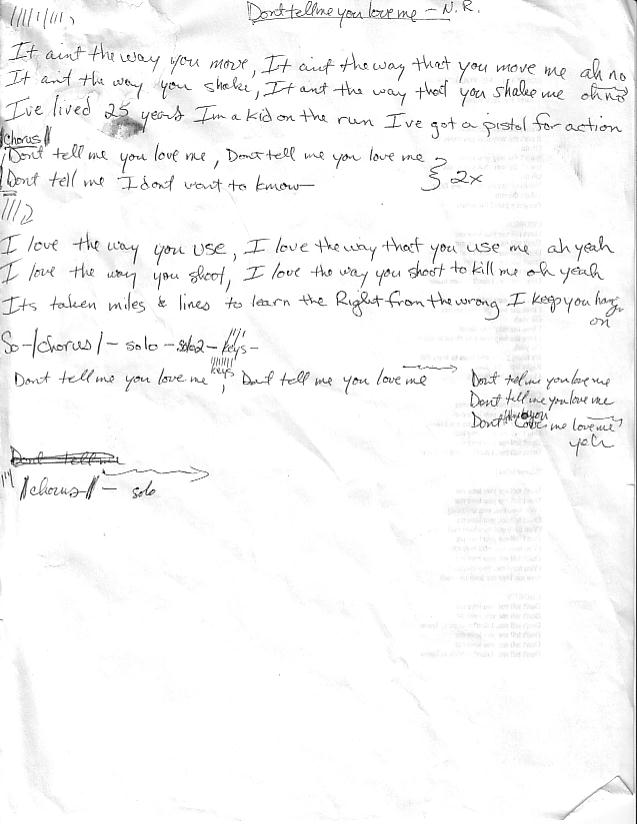 Dont tell me you love me - N.R.
It aint the way you move, It aint the way that you move me ah no
It ant the way you shake, It ant the way that you shake me oh no
I've lived 25 years Im a kid on the run I've got a pistol for action
chorus
Dont tell me you love me, Dont tell me you love me
Dont tell me I dont want to know 2x
I love the way you use, I love the way that you use me ah yeah
I love the way you shoot, I love the way you shoot to kill me oh yeah
Its taken miles & lines to learn the Right from the wrong I keep you
on
So - /chorus/ - solo - solo2 - keys -
keys
Dont tell me you love me, Dont tell me you love me
Dont tell me you love me
Dont tell me you love me
Dont you love me
yeh
Dont tell me
//chorus// - solo